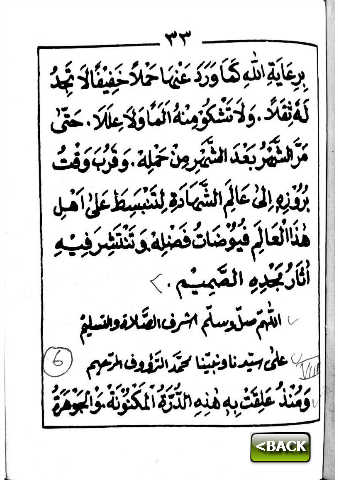 ٣٣
بِرِعَايَةِ اللهِ كَمَا وَرَدَ عَنْهَا حَمْلًا خَفِيْفًا لَا تَجِدُ
لَهُ ثِقَلًا. وَلَا تَشْكُوْ مِنْهُ اَلَمًا وَلَا عِلَلًا. حَتّٰى
مَرَّ الشَّهْرُ بَعْدَ الشَّهْرِ مِنْ حَمْلِهِ. وَقَرُبَ وَقْتُ
بُرُوْزِهِ اِلٰى عَالَمِ الشَّهَادَةِ لِتَنْبَسِطَ عَلٰى اَهْلِ
هٰذَا الْعَالَمِ فُيُوْضَاتُ فَضْلِهِ وَتَنْتَشِرَ فِيْهِ
اٰثَارُ مَجْدِهِ الصَّمِيْمِ.
اللهم صل وسلم اشرف الصلاة والتسليم
على سيدنا ونبينا محمد الرؤوف الرحيم
6
VIII
وَمُنْذُ عَلِقَتْ بِهِ هٰذِهِ الدُّرَّةُ الْمَكْنُوْنَةُ وَالْجَوْهَرَةُ
<BACK